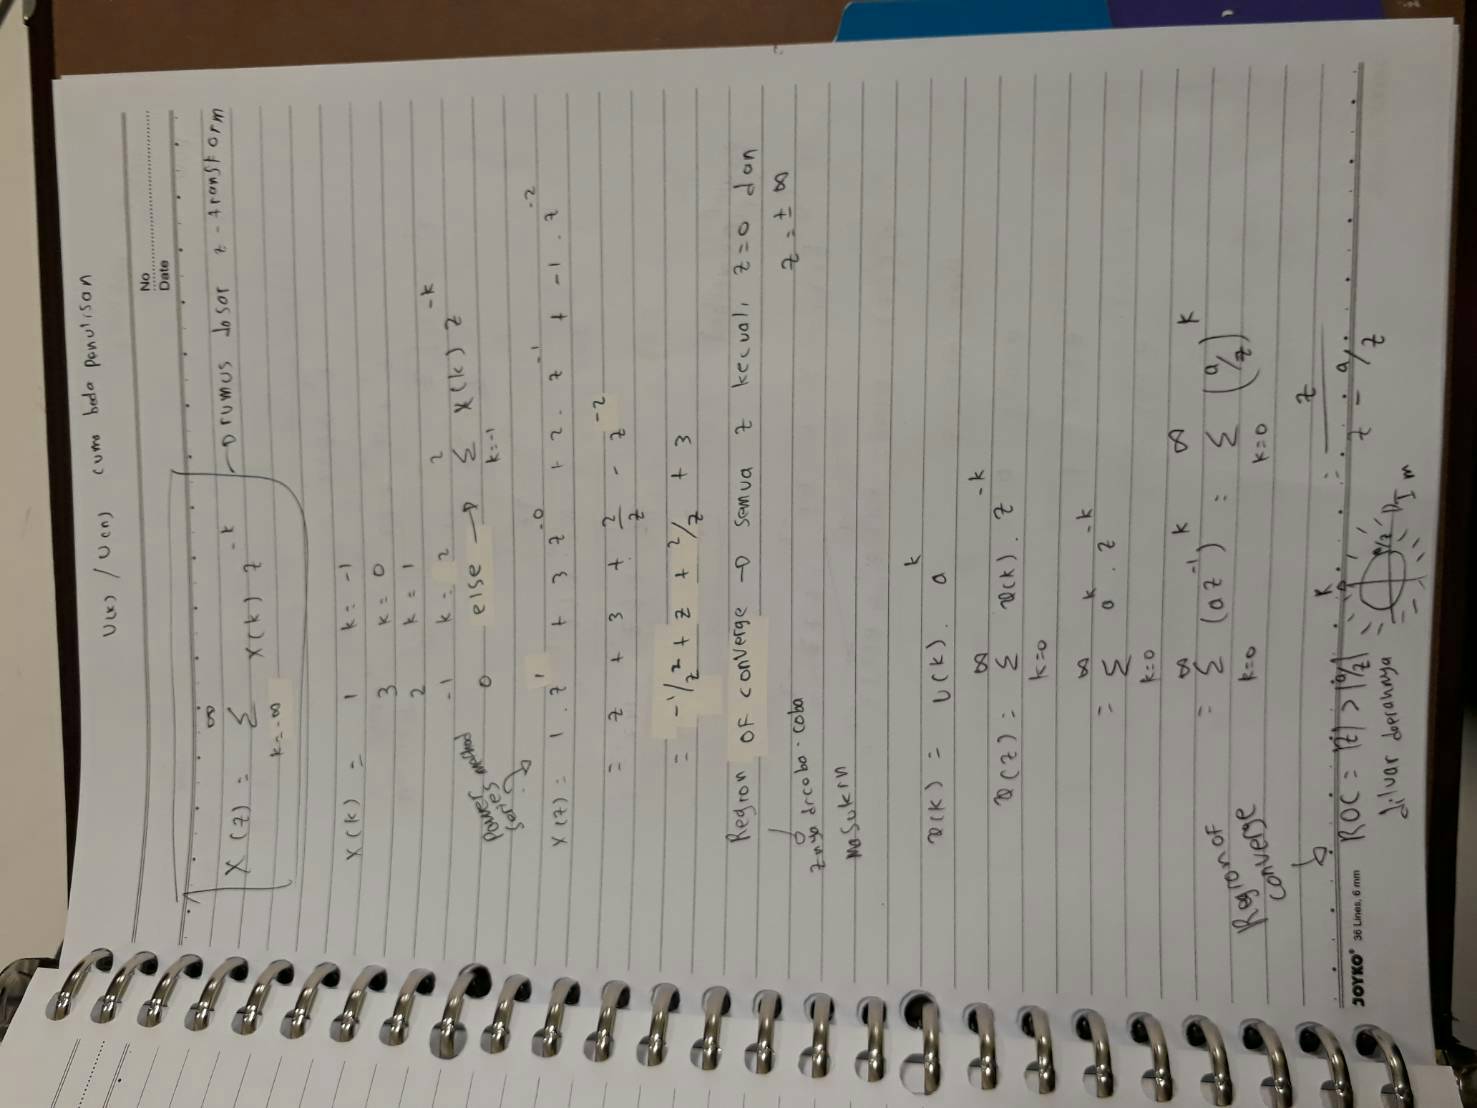 U(k) / U(n) cuma beda penulisan
No
Date
X(z) = ∞ Σ k=-∞ x(k) z^-k → rumus dasar z-transform
x(k) = 1 k = -1
3 k = 0
2 k = 1
-1 k = 2
0 else → 2 Σ k=-1 x(k) z^-k
Power series method
X(z) = 1 . z^1 + 3 z^-0 + 2 . z^-1 + -1 . z^-2
= z + 3 + 2/z - z^-2
= -1/z^2 + z + 2/z + 3
Region OF converge → semua z kecuali z=0 dan
z = ± ∞
z nya dicoba-coba
masukin
x(k) = U(k) . a^k
x(z) = ∞ Σ k=0 x(k) . z^-k
= ∞ Σ k=0 a^k . z^-k
= ∞ Σ k=0 (az^-1)^k = ∞ Σ k=0 (a/z)^k
Region OF
converge
= z / (z - a/z)
JOYKO® 36 Lines, 6 mm
ROC = |z| > |a/z|
diluar daerahnya
R
a/z
Im